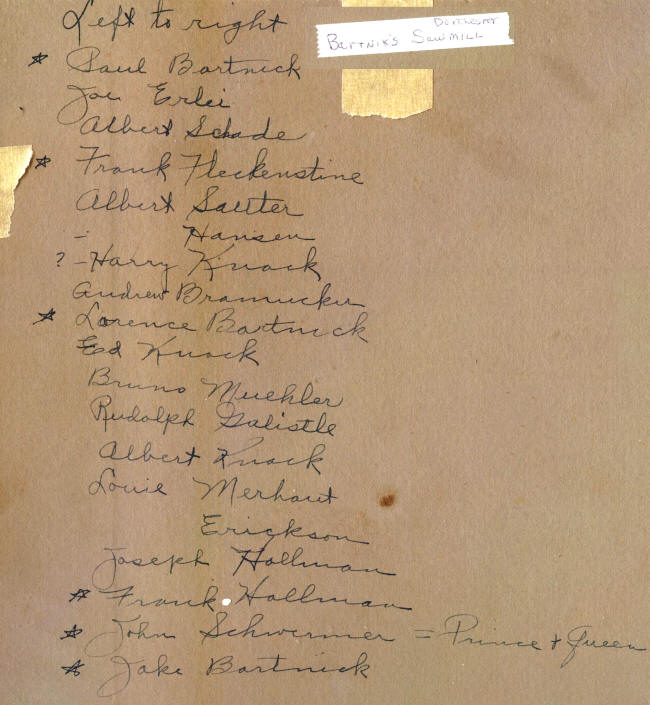 Left to right
Dorchester
Bartnik's Sawmill
☆ Paul Bartnick
Joe Erlei
Albert Schade
☆ Frank Fleckenstine
Albert Sauter
- Hansen
? - Harry Knack
Andrew Bramucker
☆ Lorence Bartnick
Ed Knack
Bruno Muehler
Rudolph Galistle
Albert Knack
Louie Merhaut
Erickson
Joseph Hollman
☆ Frank Hollman
☆ John Schwermer = Prince & Queen
☆ Jake Bartnick